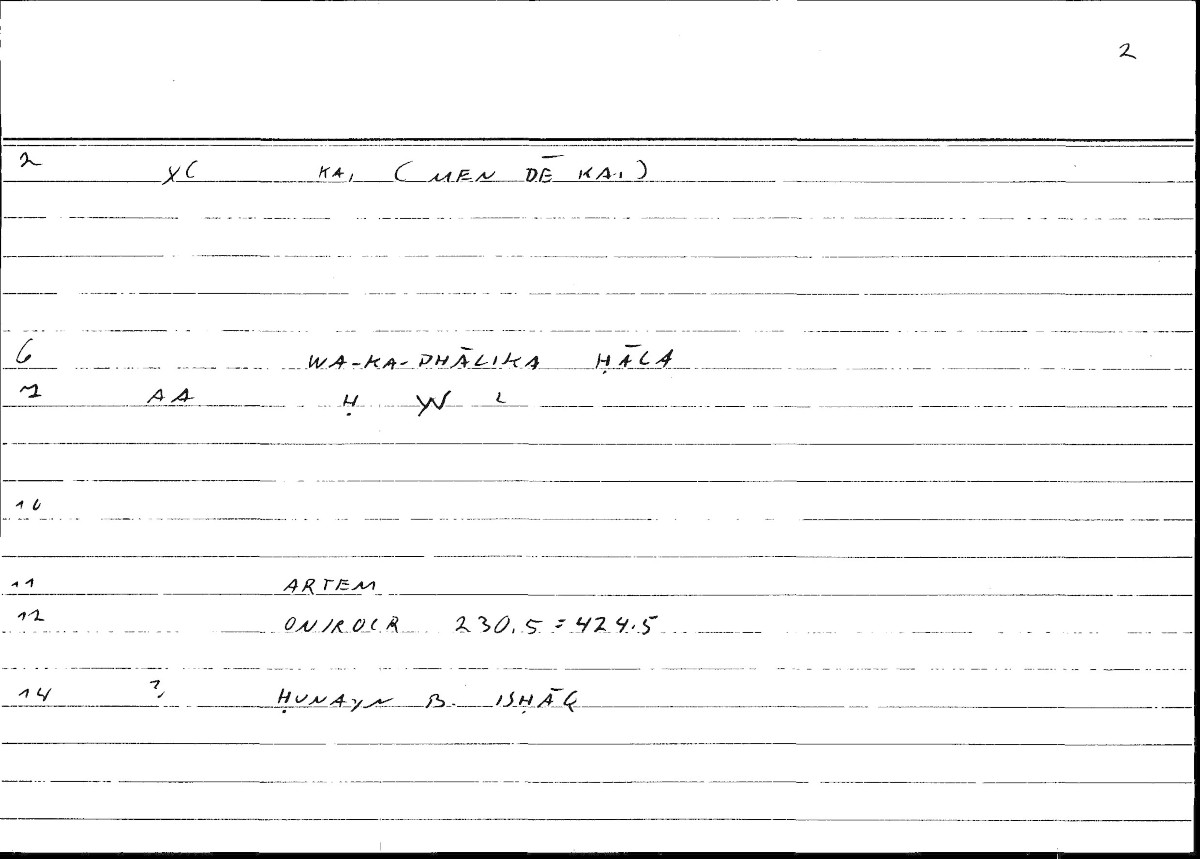 2
2 XC KAI ( MEN DĒ KAI )
6 WA-KA-DHĀLIKA ḤĀLA
7 AA Ḥ W L
10
11 ARTEM
12 ONIROCR 230.5 = 424.5
14 ? ḤUNAYN B. ISḤĀQ